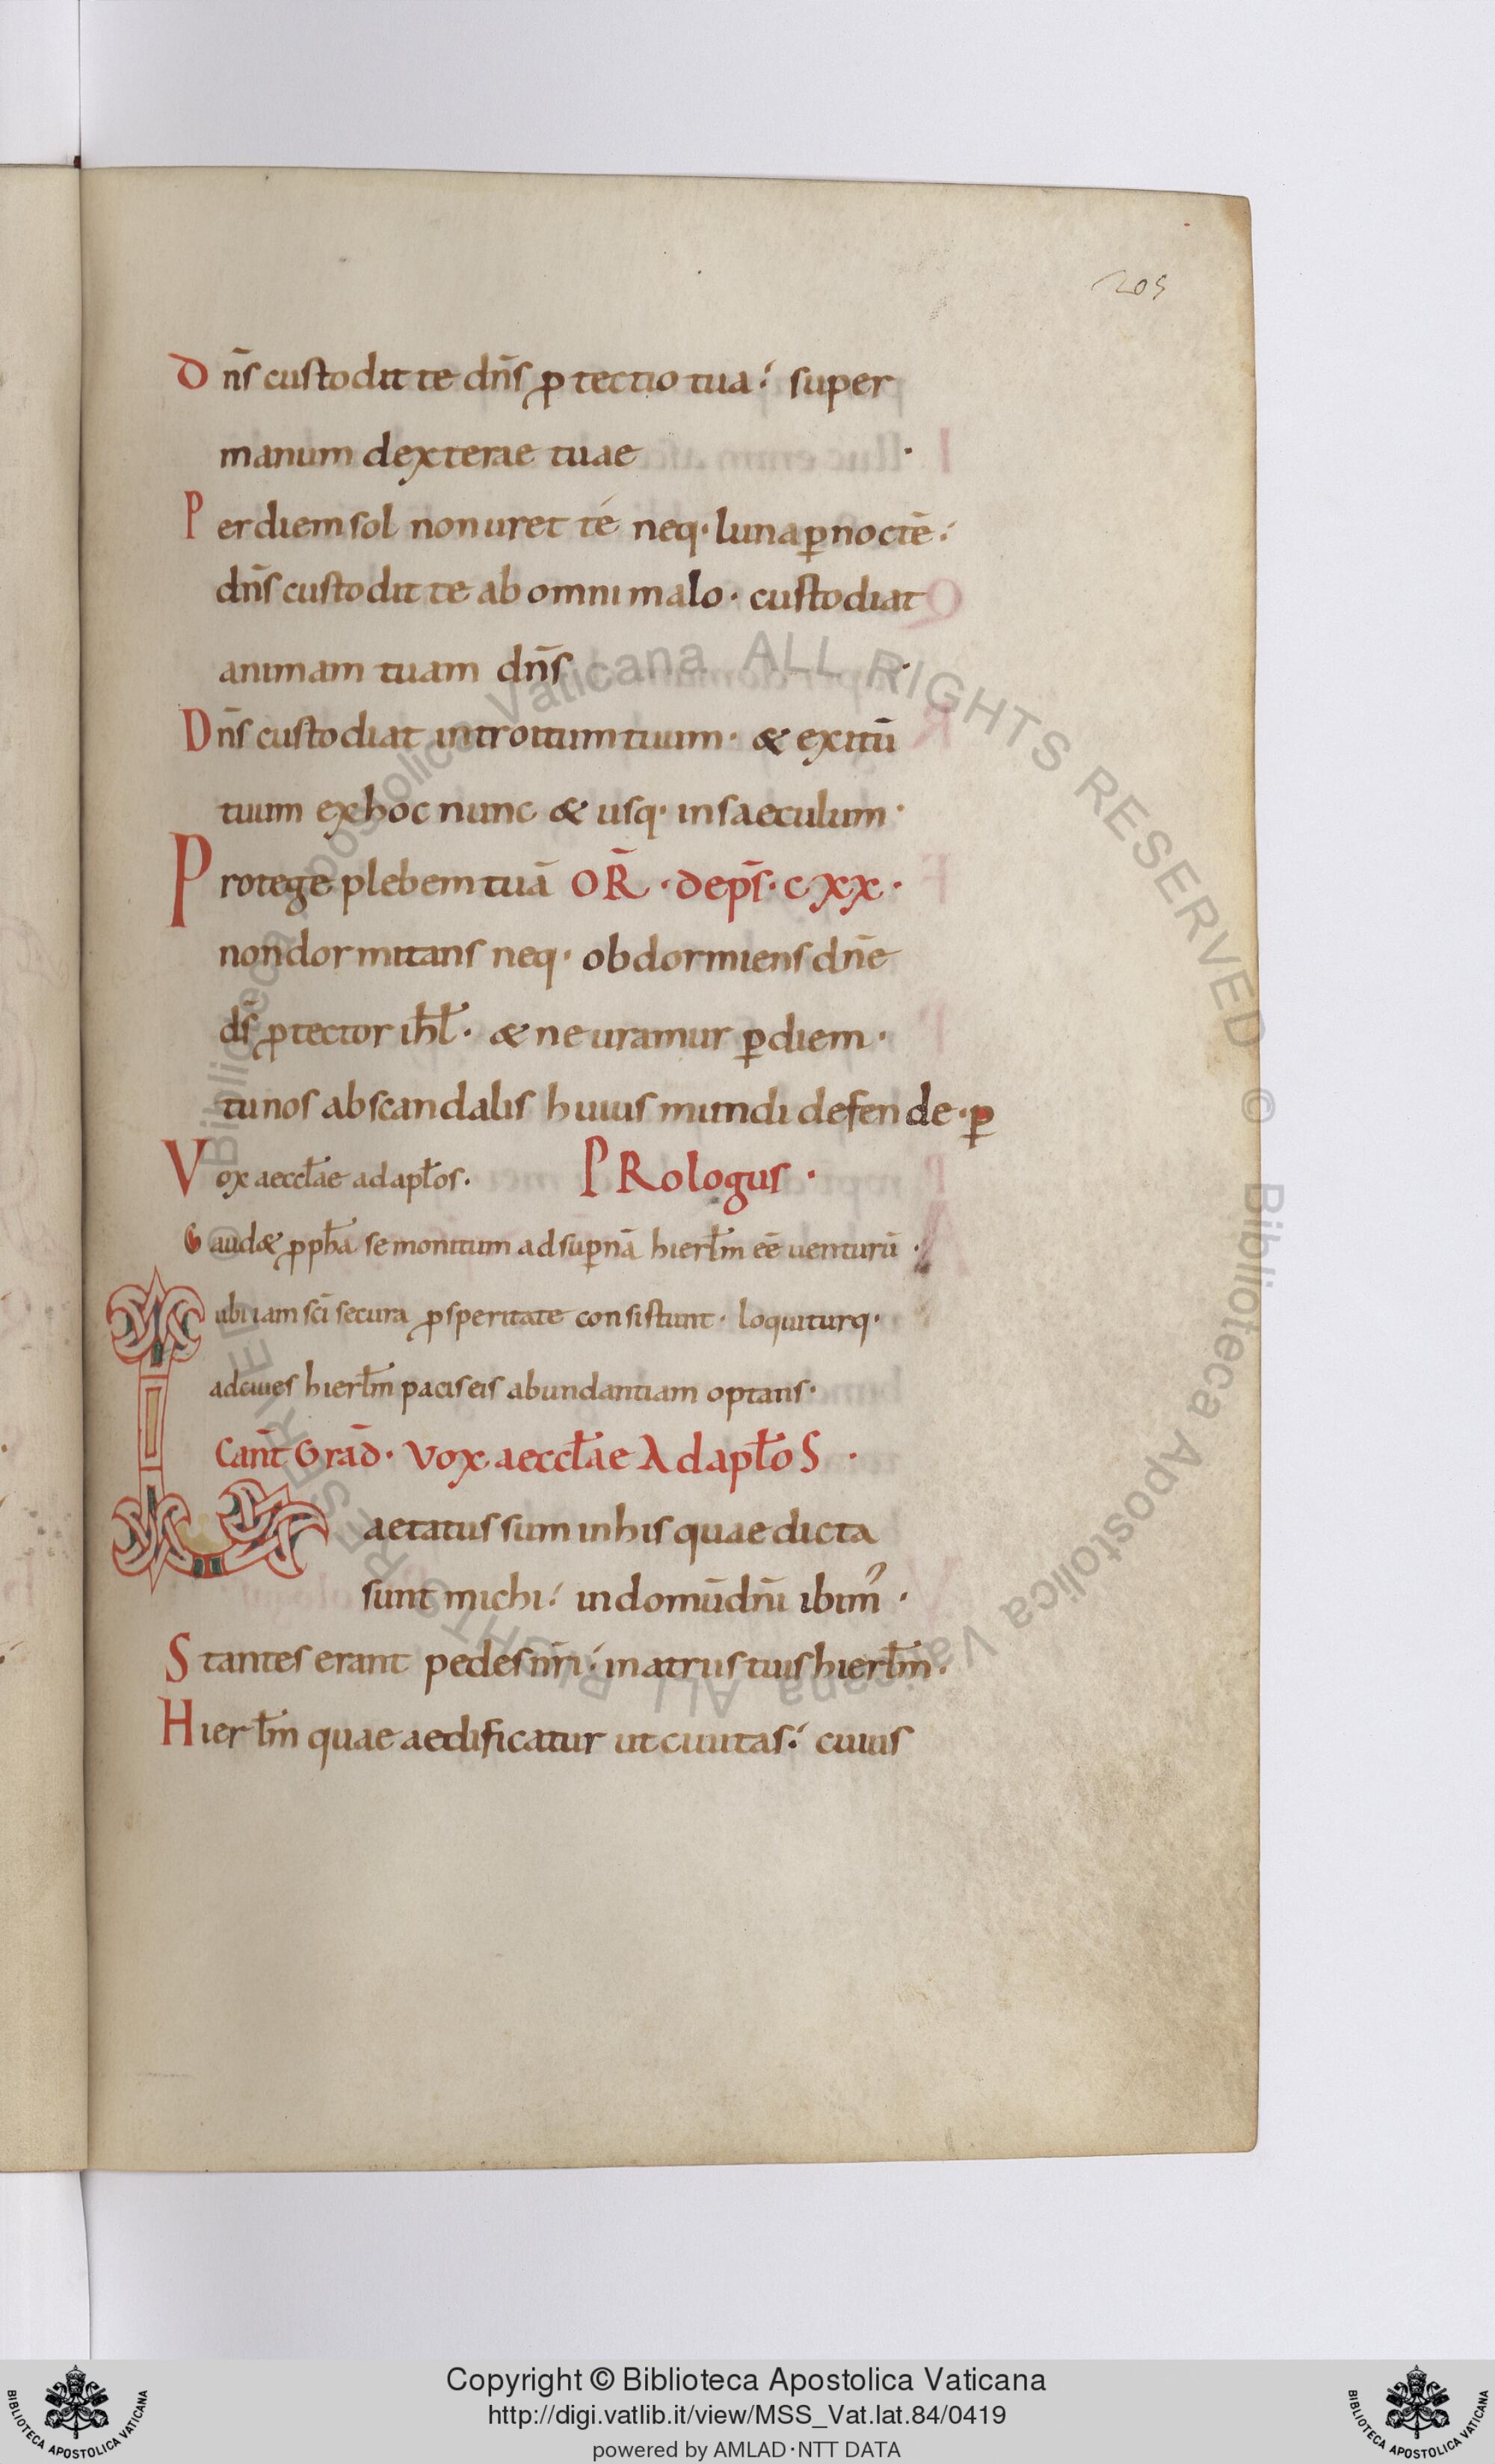 209
Dn̄s custodit te dn̄s ꝓtectio tua: super
manum dexterae tuae ·
Per diem sol non uret té neq· luna ꝑ noctē:
dn̄s custodit te ab omni malo · custodiat
animam tuam dn̄s ·
Dn̄s custodiat introitum tuum · & exitū
tuum ex hoc nunc & usq· in saeculum ·
Protege plebem tuā OR̄ · de ps̄ · cxx ·
non dormitans neq· obdormiens dn̄e
ds̄ ꝓtector ihl̄ · & ne uramur ꝑ diem ·
tu nos ab scandalis huius mundi defende · ꝑ
Vox aeccl̄ae ad apl̄os · PRologus ·
Gaud& ꝓpha se monitum ad suꝑnā hierl̄m eē uenturū ·
ubi iam sc̄i secura ꝓsperitate consistunt · loquiturq·
ad ciues hierl̄m pacis eis abundantiam optans ·
Cant̄ Grad̄ · Vox aeccl̄ae Ad apl̄oS ·
Laetatus sum in his quae dicta
sunt michi: in domū dn̄i ibim᾽ ·
Stantes erant pedes nr̄i: in atriis tuis hierl̄m ·
Hierl̄m quae aedificatur ut ciuitas: cuius
Copyright © Biblioteca Apostolica Vaticana
http://digi.vatlib.it/view/MSS_Vat.lat.84/0419
powered by AMLAD·NTT DATA
BIBLIOTECA APOSTOLICA VATICANA
BIBLIOTECA APOSTOLICA VATICANA
© Biblioteca Apostolica Vaticana ALL RIGHTS RESERVED
© Biblioteca Apostolica Vaticana ALL RIGHTS RESERVED